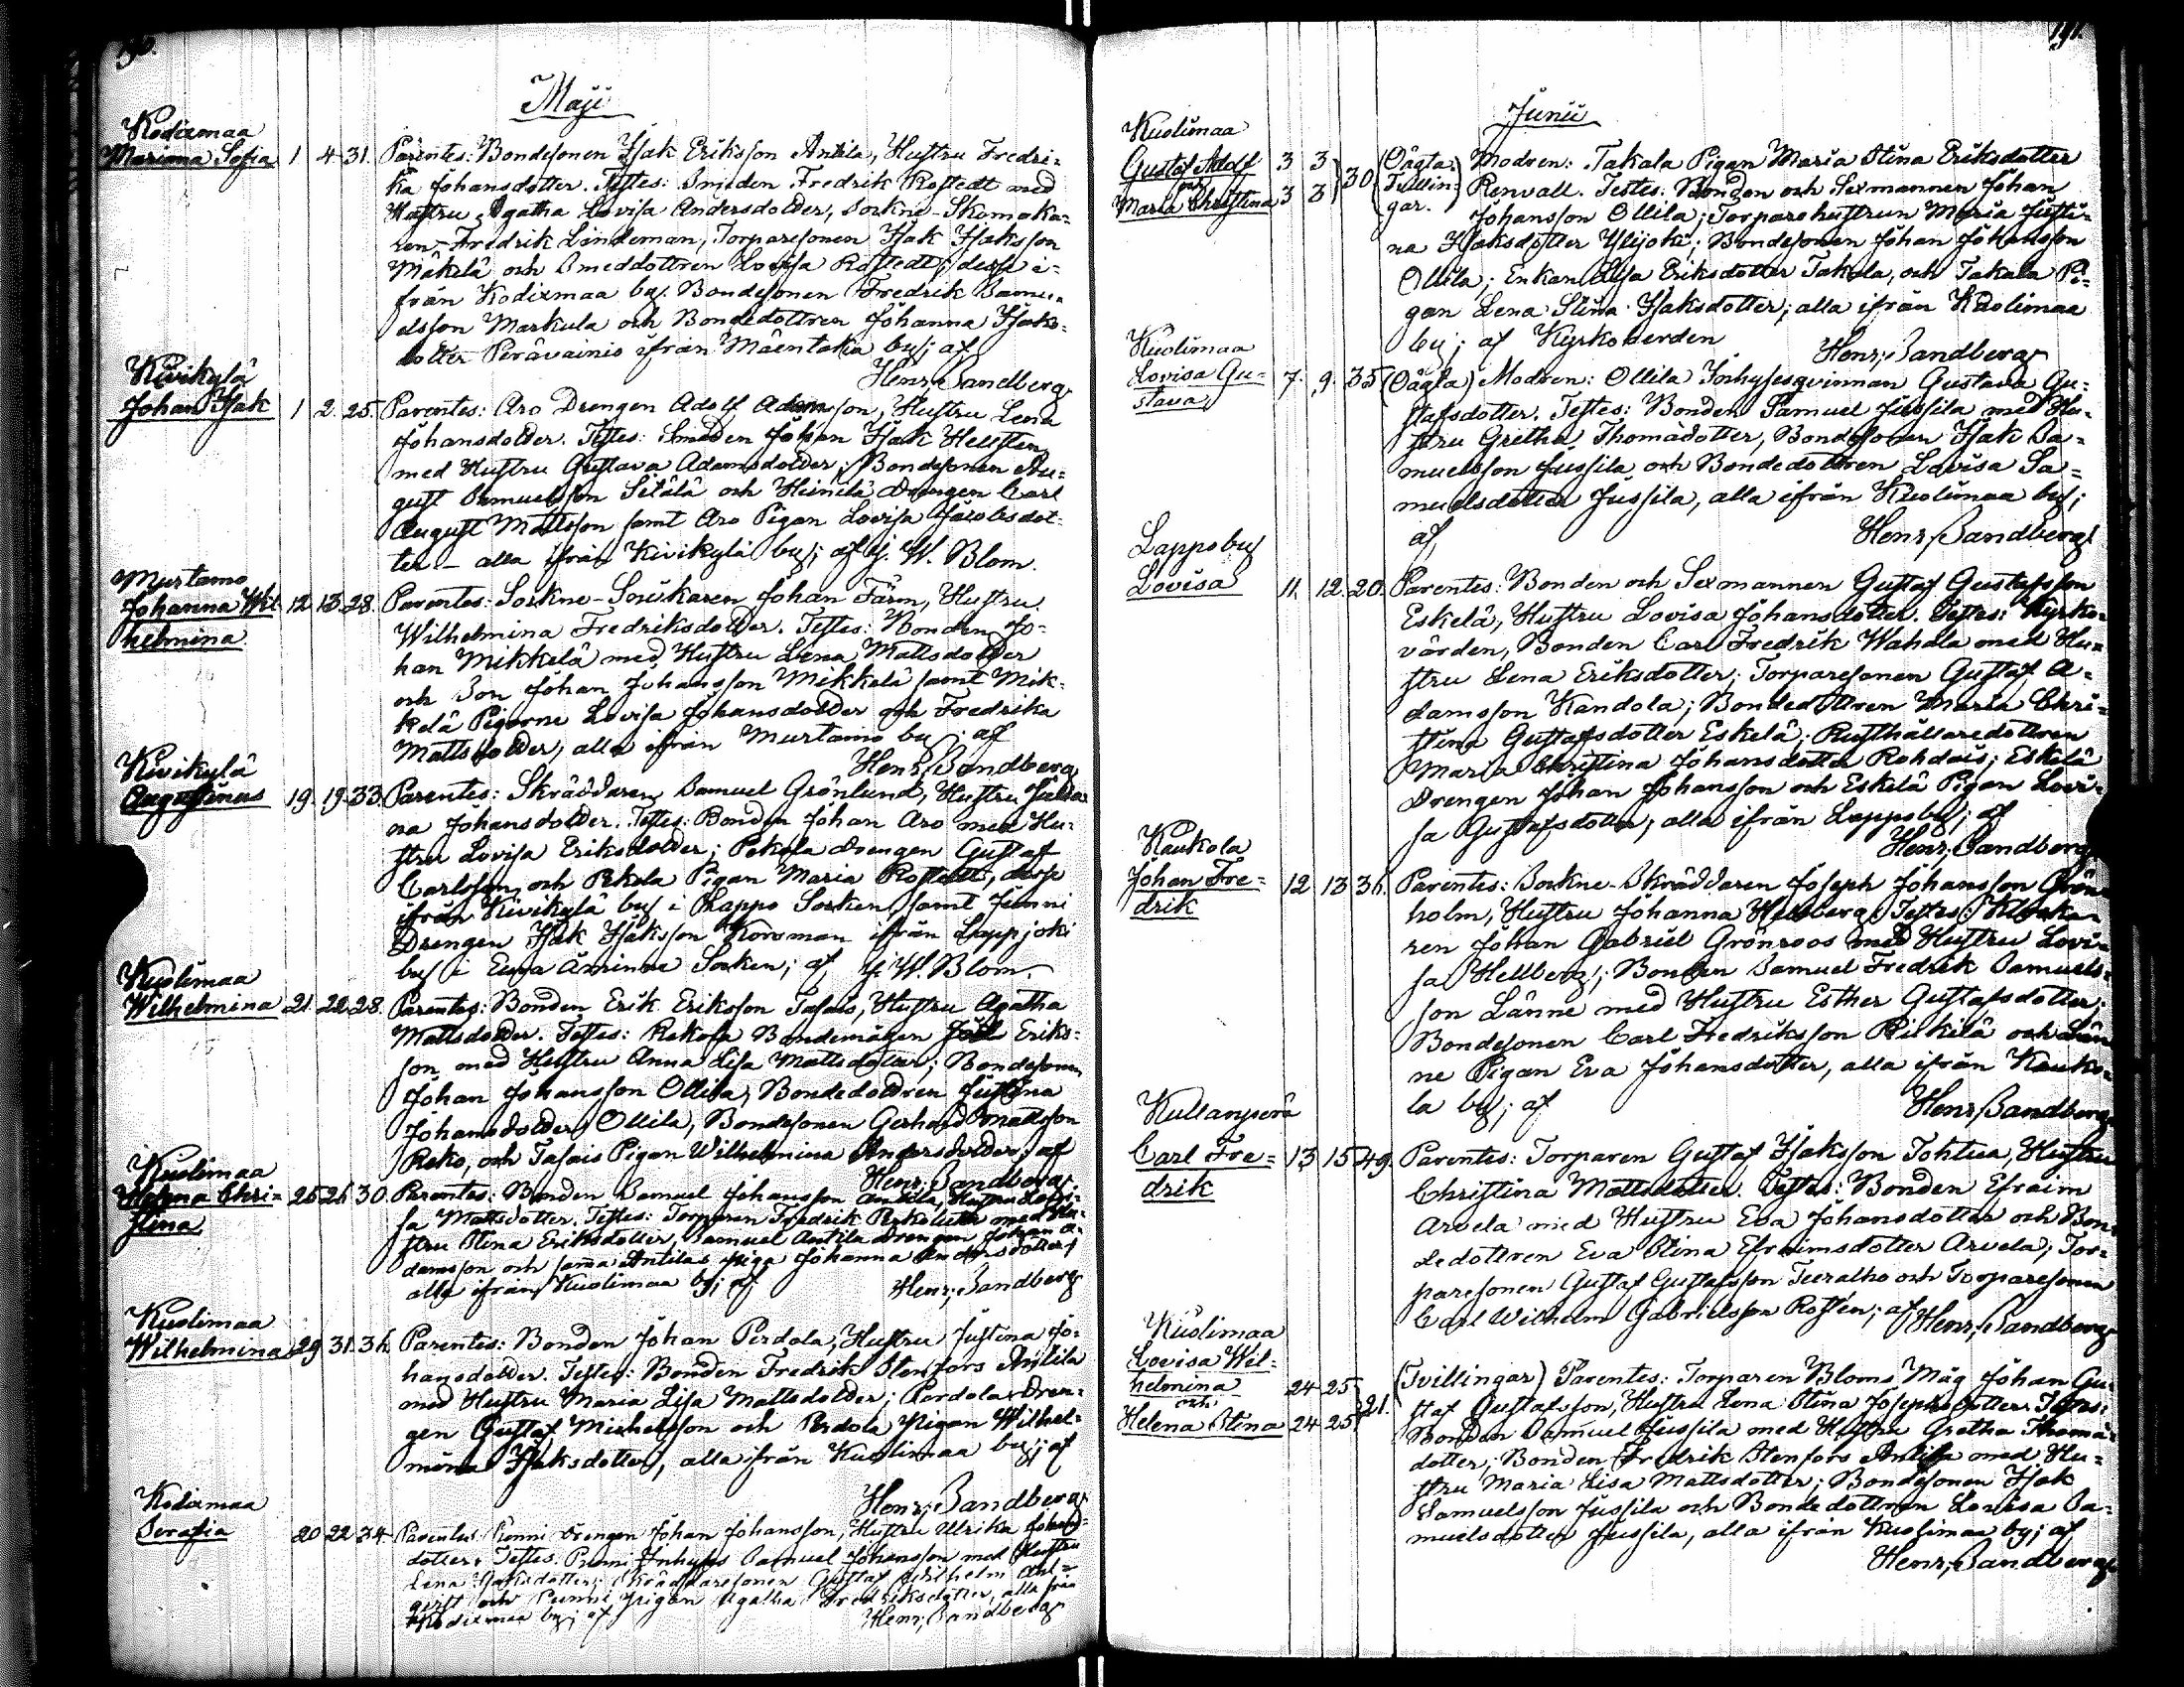 190.
Maji
Kodixmaa
Mariana Sofia 1 4 31. Parentes: Bondesonen Isak Eriksson Anttila, Hustru Fredri-
ka Johansdotter. Testes: Smeden Fredrik Rostedt med
Hustru Agatha Lovisa Andersdotter, Sockne-Skomaka-
ren Fredrik Lindeman, Torparesonen Isak Isaksson
Mäkelä och Smeddottren Lovisa Rostedt; dessa i-
från Kodixmaa by. Bondesonen Fredrik Samu-
elsson Markula och Bondedottren Johanna Isaks-
dotter Perävainio ifrån Mäentaka by; af
Henr. Sandberg
Kivikylä
Johan Isak 1 2. 25. Parentes: Aro Drengen Adolf Adamsson, Hustru Lena
Johansdotter. Testes: Smeden Johan Isak Hellsten
med Hustru Gustava Adamsdotter; Bondesonen Au-
gust Samuelsson Sitälä och Heinilä Drengen Carl
August Mattsson samt Aro Pigan Lovisa Jacobsdot-
ter - alla ifrån Kivikylä by; af G. W. Blom.
Murtamo
Johanna Wil- 12. 13. 28. Parentes: Sockne-Snickaren Johan Färm, Hustru
helmina Wilhelmina Fredriksdotter. Testes: Bonden Jo-
han Mikkelä med Hustru Lena Mattsdotter
och Son Johan Johansson Mikkelä samt Mik-
kelä Pigorne Lovisa Johansdotter och Fredrika
Mattsdotter, alla ifrån Murtamo by; af
Henr. Sandberg
Kivikylä
Augustinus 19. 19. 33. Parentes: Skräddaren Samuel Grönlund, Hustru
na Johansdotter. Testes: Bonden Johan Aro med Hu-
stru Lovisa Eriksdotter; Pekola drengen Gustaf
Carlsson och Pekola Pigan Maria Rostedt, dessa
ifrån Kivikylä by i Lappo Socken, samt Junni
Drengen Isak Isaksson Korsman ifrån Lappjoki
by i Eura åminne Socken; af G. W. Blom.
Kuolimaa
Wilhelmina 21. 22. 28. Parentes: Bonden Erik Eriksson Tasais, Hustru Agatha
Mattsdotter. Testes: Rekola Bondemågen Joel Eriks-
son med Hustru Anna Lisa Mattsdotter; Bondesonen
Johan Johansson Ollila, Bondedottren Justina
Johansdotter Ollila, Bondesonen Gerhard Mattsson
Reko, och Tasais Pigan Wilhelmina Andersdotter; af
Henr. Sandberg
Kuolimaa
Helena Chri- 25 26 30. Parentes: Bonden Samuel Johansson Anttila, Hustru Lovi-
stina sa Mattsdotter. Testes: Torparen Fredrik med Hu-
stru Stina Eriksdotter, Samuel Antila drengen Johan A-
damsson och samma Antilas piga Johanna Andersdotter,
alla ifrån Kuolimaa by; af Henr. Sandberg
Kuolimaa
Wilhelmina 29 31. 36. Parentes: Bonden Johan Perdola, Hustru Justina Jo-
hansdotter. Testes: Bonden Fredrik Stenfors Antila
med Hustru Maria Lisa Mattsdotter; Perdola Dren-
gen Gustaf Michelsson och Perdola Pigan Wilhel-
mina Isaksdotter, alla ifrån Kuolimaa by; af
Henr. Sandberg
Kodixmaa
Serafia 20 22 34. Parentes: Punni Drengen Johan Johansson, Hustru Ulrika Johans-
dotter. Testes: Punni Inhyses Samuel Johansson med Hustru
Lena Isaksdotter; Skräddaresonen Gustaf Wilhelm Ahl-
qvist och Punni pigan Agatha Fredriksdotter, alla från
Kodixmaa by; af Henr. Sandberg
191.
Junii
Kuolimaa
Gustaf Adolf 3 3 30 (Oägta Modren: Takala Pigan Maria Stina Eriksdotter
och
Maria Christina 3 3 Tvillin- Renvall. Testes: Bonden och Sexmannen Johan
gar.) Johansson Ollila; Torparehustrun Maria Justi-
na Isaksdotter Ylijoki; Bondesonen Johan Johansson
Ollila; Enkan Lisa Eriksdotter Takala, och Takala Pi-
gan Lena Stina Isaksdotter; alla ifrån Kuolimaa
by; af Kyrkoherden
Henr. Sandberg
Kuolimaa
Lovisa Gu- 7. 9. 35 (Oägta) Modren: Ollila Inhysesqvinnan Gustava Gu-
stava stafsdotter. Testes: Bonden Samuel Jussila med Hu-
stru Gretha Thomädotter, Bondesonen Isak Sa-
muelsson Jussila och Bondedottren Lovisa Sa-
muelsdotter Jussila, alla ifrån Kuolimaa by;
af Henr. Sandberg
Lappo by
Lovisa 11. 12. 20. Parentes: Bonden och Sexmannen Gustaf Gustafsson
Eskelä, Hustru Lovisa Johansdotter. Testes: Kyrko-
värden, Bonden Carl Fredrik Wahala med Hu-
stru Lena Eriksdotter; Torparesonen Gustaf A-
damsson Kandola; Bondedottren Maria Chri-
stina Gustafsdotter Eskelä; Rusthållaredottren
Maria Christina Johansdotter Rohdais; Eskelä
Drengen Johan Johansson och Eskelä Pigan Lovi-
sa Gustafsdotter, alla ifrån Lappo by; af
Henr. Sandberg
Kaukola
Johan Fre- 12 13 36. Parentes: Sockne-Skräddaren Joseph Johansson Grön-
drik holm, Hustru Johanna Hellberg. Testes: Klocka-
ren Johan Gabriel Grönroos med Hustru Lovi-
sa Hellberg; Bonden Samuel Fredrik Samuels-
son Länne med Hustru Esther Gustafsdotter;
Bondesonen Carl Fredriksson Pirkilä och Län-
ne Pigan Eva Johansdotter, alla ifrån Kauko-
la by; af Henr. Sandberg
Kullanperä
Carl Fre- 13 15 49. Parentes: Torparen Gustaf Isaksson Tohtua, Hustru
drik Christina Mattsdotter. Testes: Bonden Efraim
Arvela med Hustru Eva Johansdotter och Bon-
dedottren Eva Stina Efraimsdotter Arvela; Tor-
paresonen Gustaf Gustafsson Teeralho och Torparesonen
Carl Wilhelm Gabrielsson Rossén; af Henr. Sandberg
Kuolimaa
Lovisa Wil- (Tvillingar) Parentes: Torparen Bloms Måg Johan Gu-
helmina 24 25 21. staf Gustafsson, Hustru Lena Stina Josephsdotter. Testes:
och
Helena Stina 24 25 Bonden Samuel Jussila med Hustru Gretha Thomä-
dotter; Bonden Fredrik Stenfors Antila med Hu-
stru Maria Lisa Mattsdotter; Bondesonen Isak
Samuelsson Jussila och Bondedottren Lovisa Sa-
muelsdotter Jussila, alla ifrån Kuolimaa by; af
Henr. Sandberg